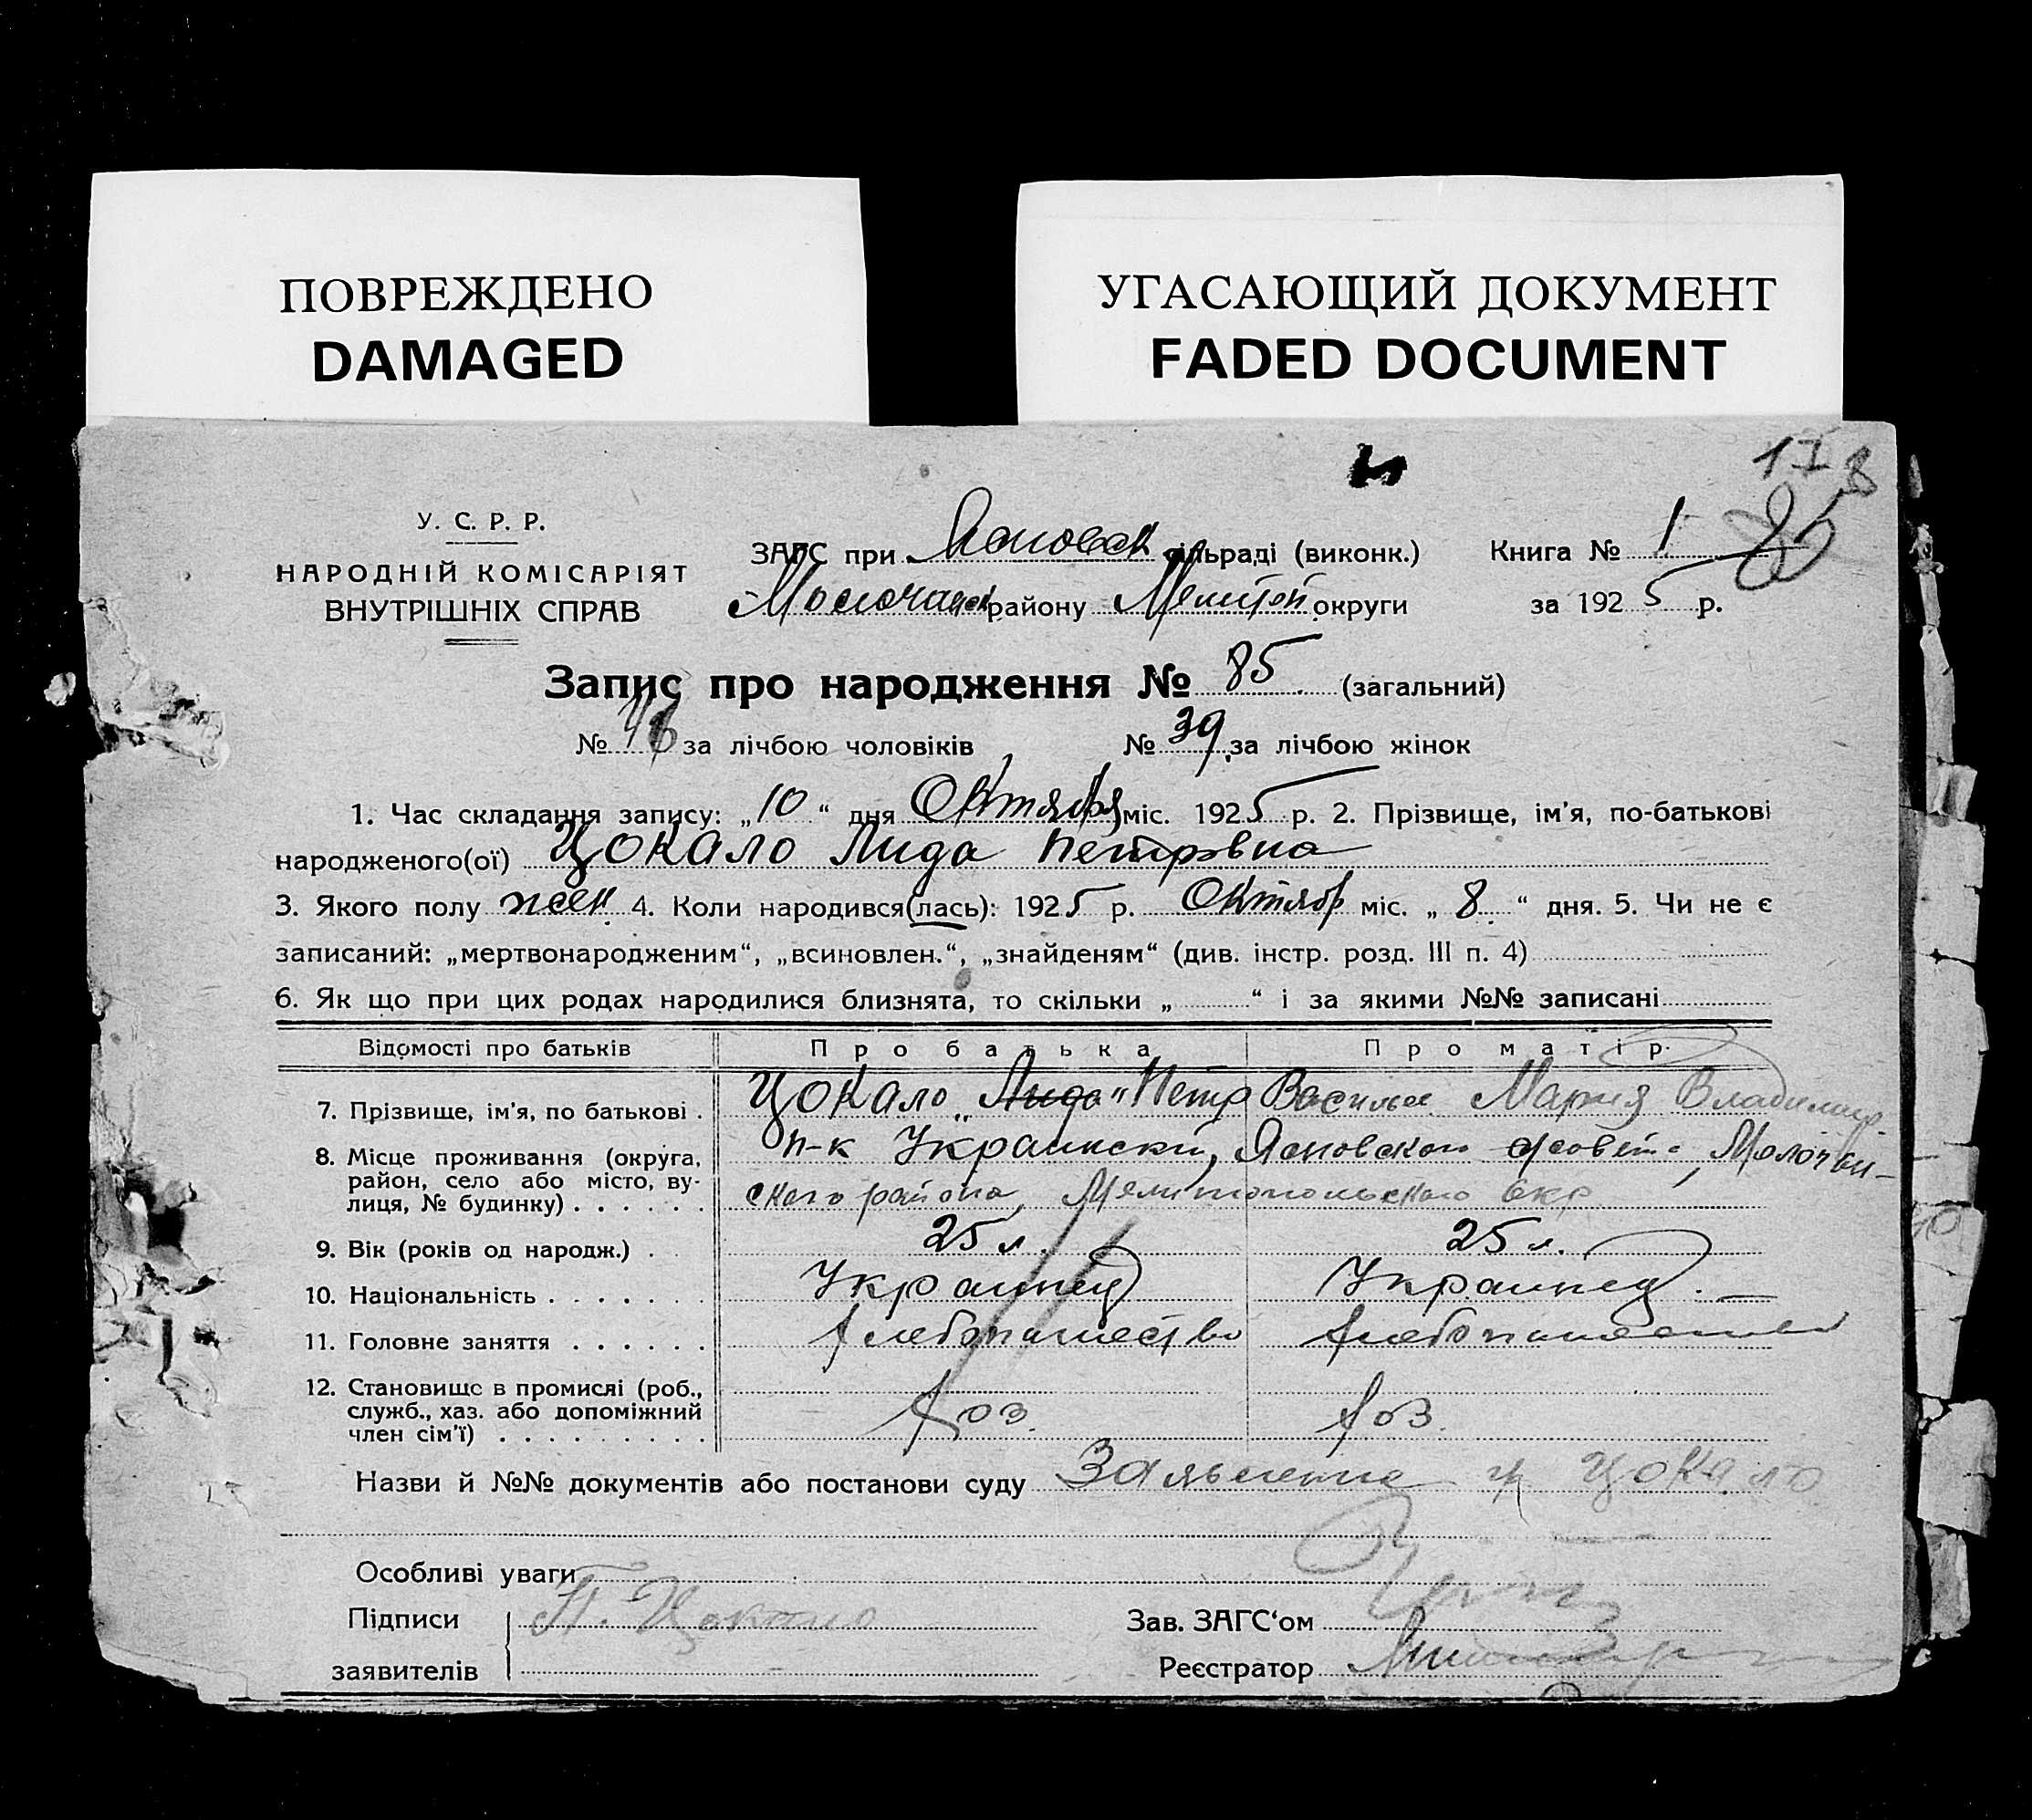 ПОВРЕЖДЕНО
DAMAGED
УГАСАЮЩИЙ ДОКУМЕНТ
FADED DOCUMENT
178
85
У. С. Р. Р.
НАРОДНІЙ КОМІСАРІЯТ
ВНУТРІШНІХ СПРАВ
ЗАГС при Ясновск сільраді (виконк.) Книга № 1
Молочанск району Мелитоп округи за 1925 р.
Запис про народження № 85 (загальний)
№ 46 за лічбою чоловіків № 39 за лічбою жінок
1. Час складання запису: „10“ дня Октября міс. 1925 р. 2. Прізвище, ім'я, по-батькові
народженого(ої) Цокало Лида Петровна
3. Якого полу жен. 4. Коли народився(лась): 1925 р. Октябр міс. „8“ дня. 5. Чи не є
записаний: „мертвонародженим“, „всиновлен.“, „знайденям“ (див. інстр. розд. III п. 4)
6. Як що при цих родах народилися близнята, то скільки „ “ і за якими №№ записані
Відомості про батьків Про батька Про матір
7. Прізвище, ім'я, по батькові . Цокало „Лида“ Петр Василье Мария Владимир
8. Місце проживання (округа, район, село або місто, вулиця, № будинку) . . . . . . п-к Украинский, Ясновского с/совета, Молочан-
ского района, Мелитопольского окр
9. Вік (років од народж.) . 25 л. 25 л.
10. Національність . . . . . . . Украинец Украинец.
11. Головне заняття . . . . . . Хлебопашество Хлебопашество
12. Становище в промислі (роб., служб., хаз. або допоміжний член сім'ї) . . . . . . . . . Хоз. Хоз.
Назви й №№ документів або постанови суду Заявление гр Цокало
Особливі уваги
Підписи П. Цокало Зав. ЗАГС'ом
заявителів Реєстратор